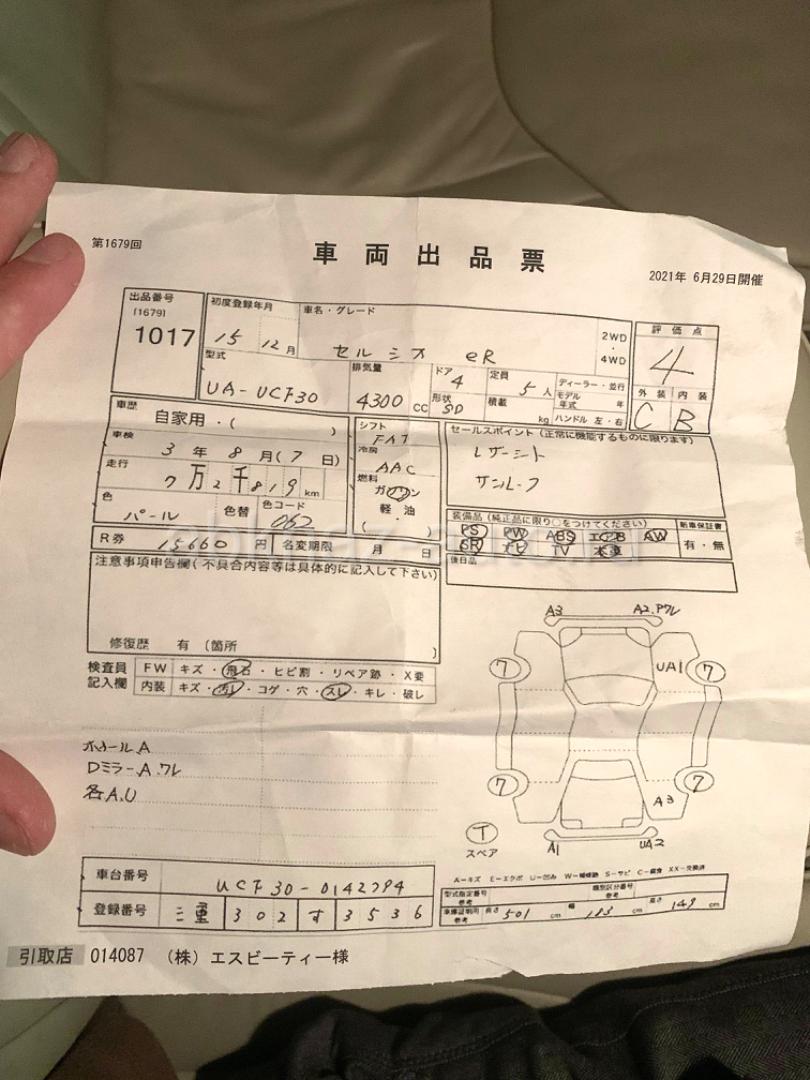 第1679回
車両出品票
2021年 6月29日開催
出品番号
(1679)
1017
初度登録年月
15 12月
車名・グレード
セルシオ eR
2WD
・
4WD
評価点
4
型式
UA-UCF30
排気量
4300 CC
ドア
4
形状
SD
定員
5人
積載
kg
ディーラー・並行
モデル
年式 年
ハンドル 左・右
外装 内装
C B
車歴
自家用・( )
車検
3年 8月(7日)
走行
7万2千819km
色
パール
色替
色コード
062
シフト
FAT
冷房
AAC
燃料
ガソリン
軽油
( )
セールスポイント(正常に機能するものに限ります)
レザーシート
サンルーフ
装備品(純正品に限り○をつけてください)
PS PW ABS エアB AW
SR ナビ TV 本革
新車保証書
有・無
後日品
R券 15660円 名変期限 月 日
注意事項申告欄(不具合内容等は具体的に記入して下さい)
修復歴 有(箇所 )
検査員
記入欄
FW キズ・飛石・ヒビ割・リペア跡・X要
内装 キズ・汚れ・コゲ・穴・スレ・キレ・破レ
ホイールA
Dミラー A.ワレ
各A.U
A3 A2.ワレ
7 UA1 7
7 A3 7
T
スペア
A1 UA2
A-キズ E-エクボ U-凹み W-補修跡 S-サビ C-腐食 XX-交換済
型式指定番号
参考
類別区分番号
参考
車庫証明用
参考
長さ 501 cm 幅 183 cm 高さ 149 cm
車台番号 UCF30-0142794
登録番号 三重 302 す 3536
引取店 014087 (株)エスビーティー様